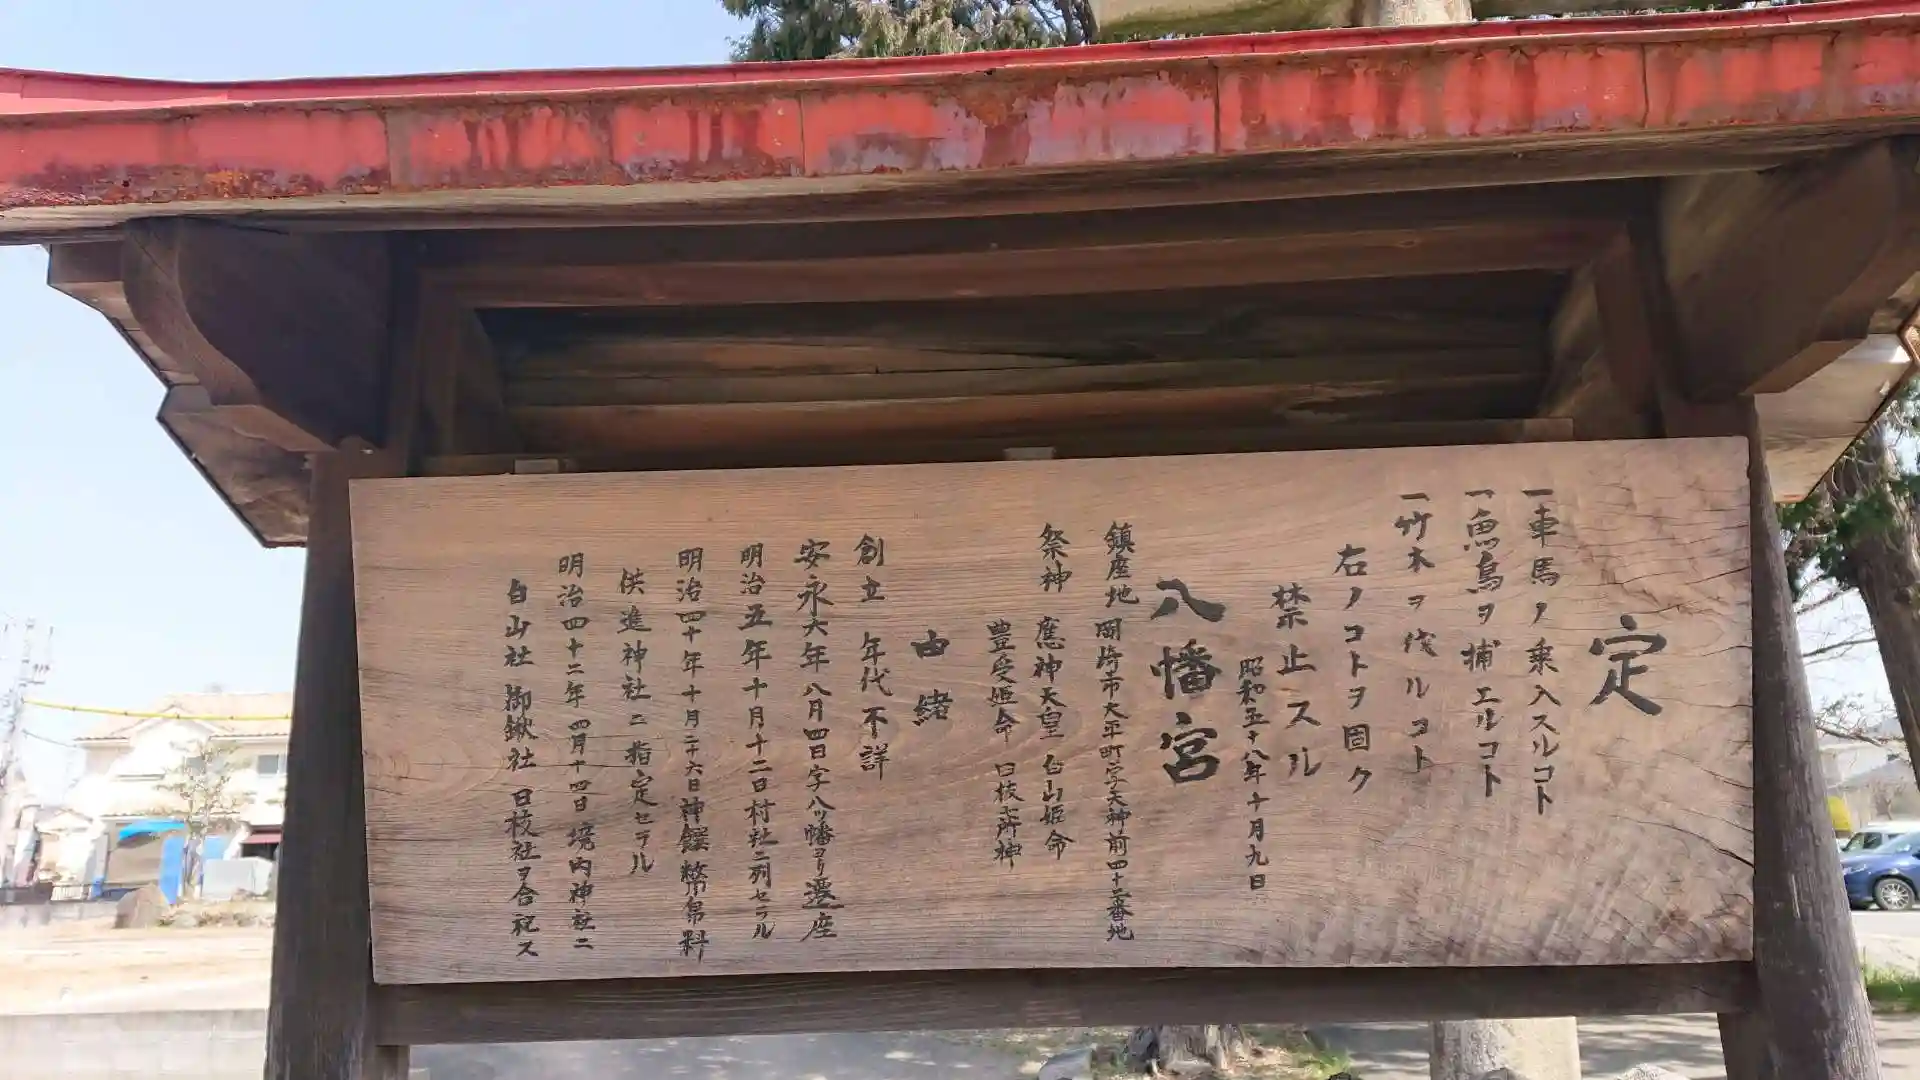 定
一車馬ノ乗入スルコト
一魚鳥ヲ捕エルコト
一竹木ヲ伐ルコト
右ノコトヲ固ク
禁止スル
昭和五十八年十月九日
八幡宮
鎮座地 岡崎市大平町字天神前四十二番地
祭神 應神天皇 白山姫命
豊受姫命 日枝 神
由緒
創立 年代不詳
安永六年八月四日字八ッ幡ヨリ遷座
明治五年十月十二日村社ニ列セラル
明治四十年十月二十六日神饌幣帛料
供進神社ニ指定セラル
明治四十二年四月十四日境内神社ニ
白山社 御鍬社 日枝社ヲ合祀ス